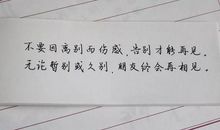 不要因离别而伤感，告别才够再见。
无论暂别或久别，朋友终会再相见。